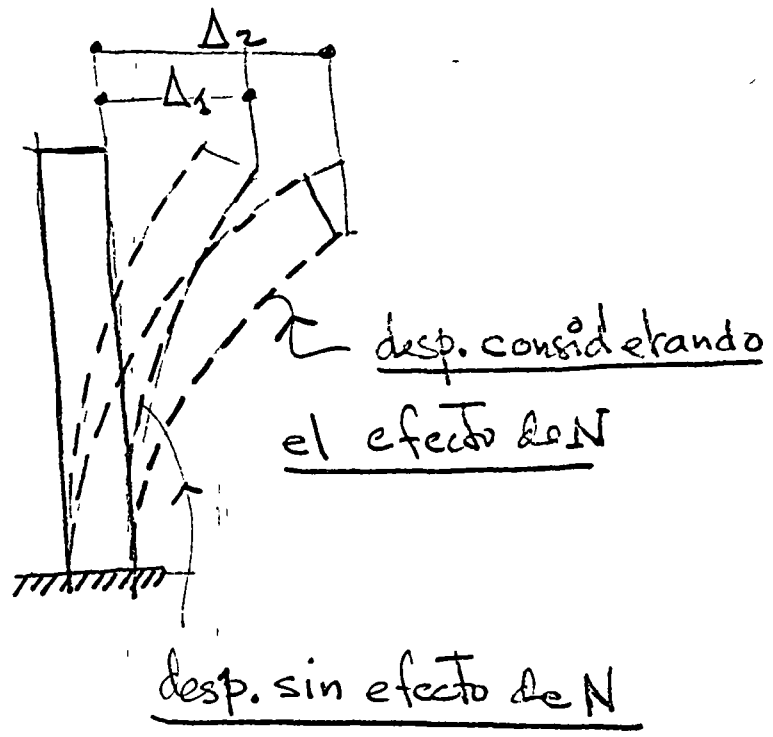 Δ2
Δ1
desp. considerando
el efecto de N
desp. sin efecto de N